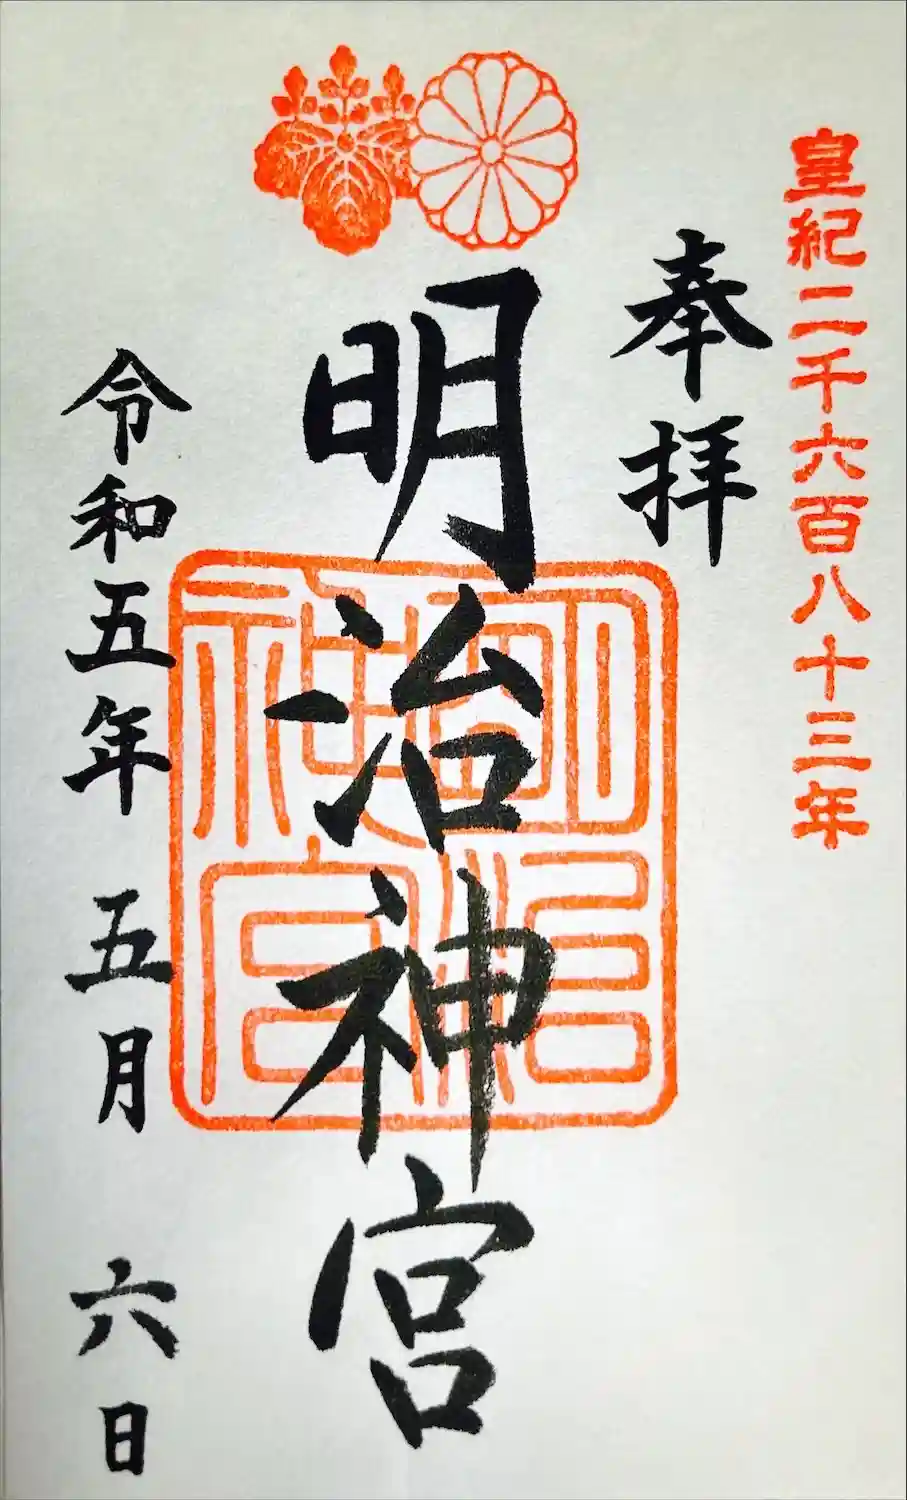 皇紀二千六百八十三年
奉拝
明治神宮
明治神宮
令和五年 五月 六日